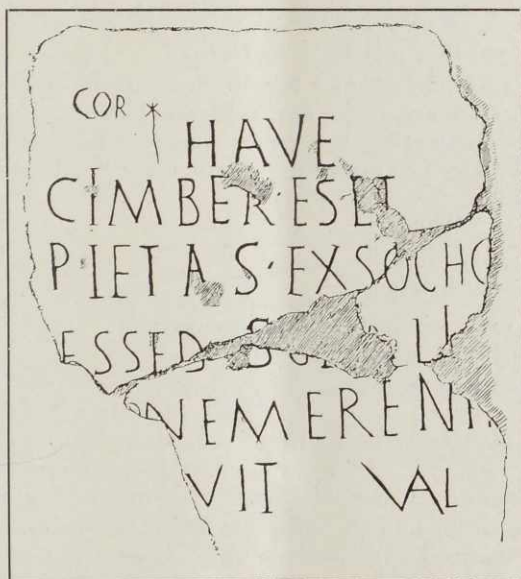 COR
HAVE
CIMBER·ES ET
PIETAS·EXSOCHO
ESSED
NEMEREN
VIT VAL